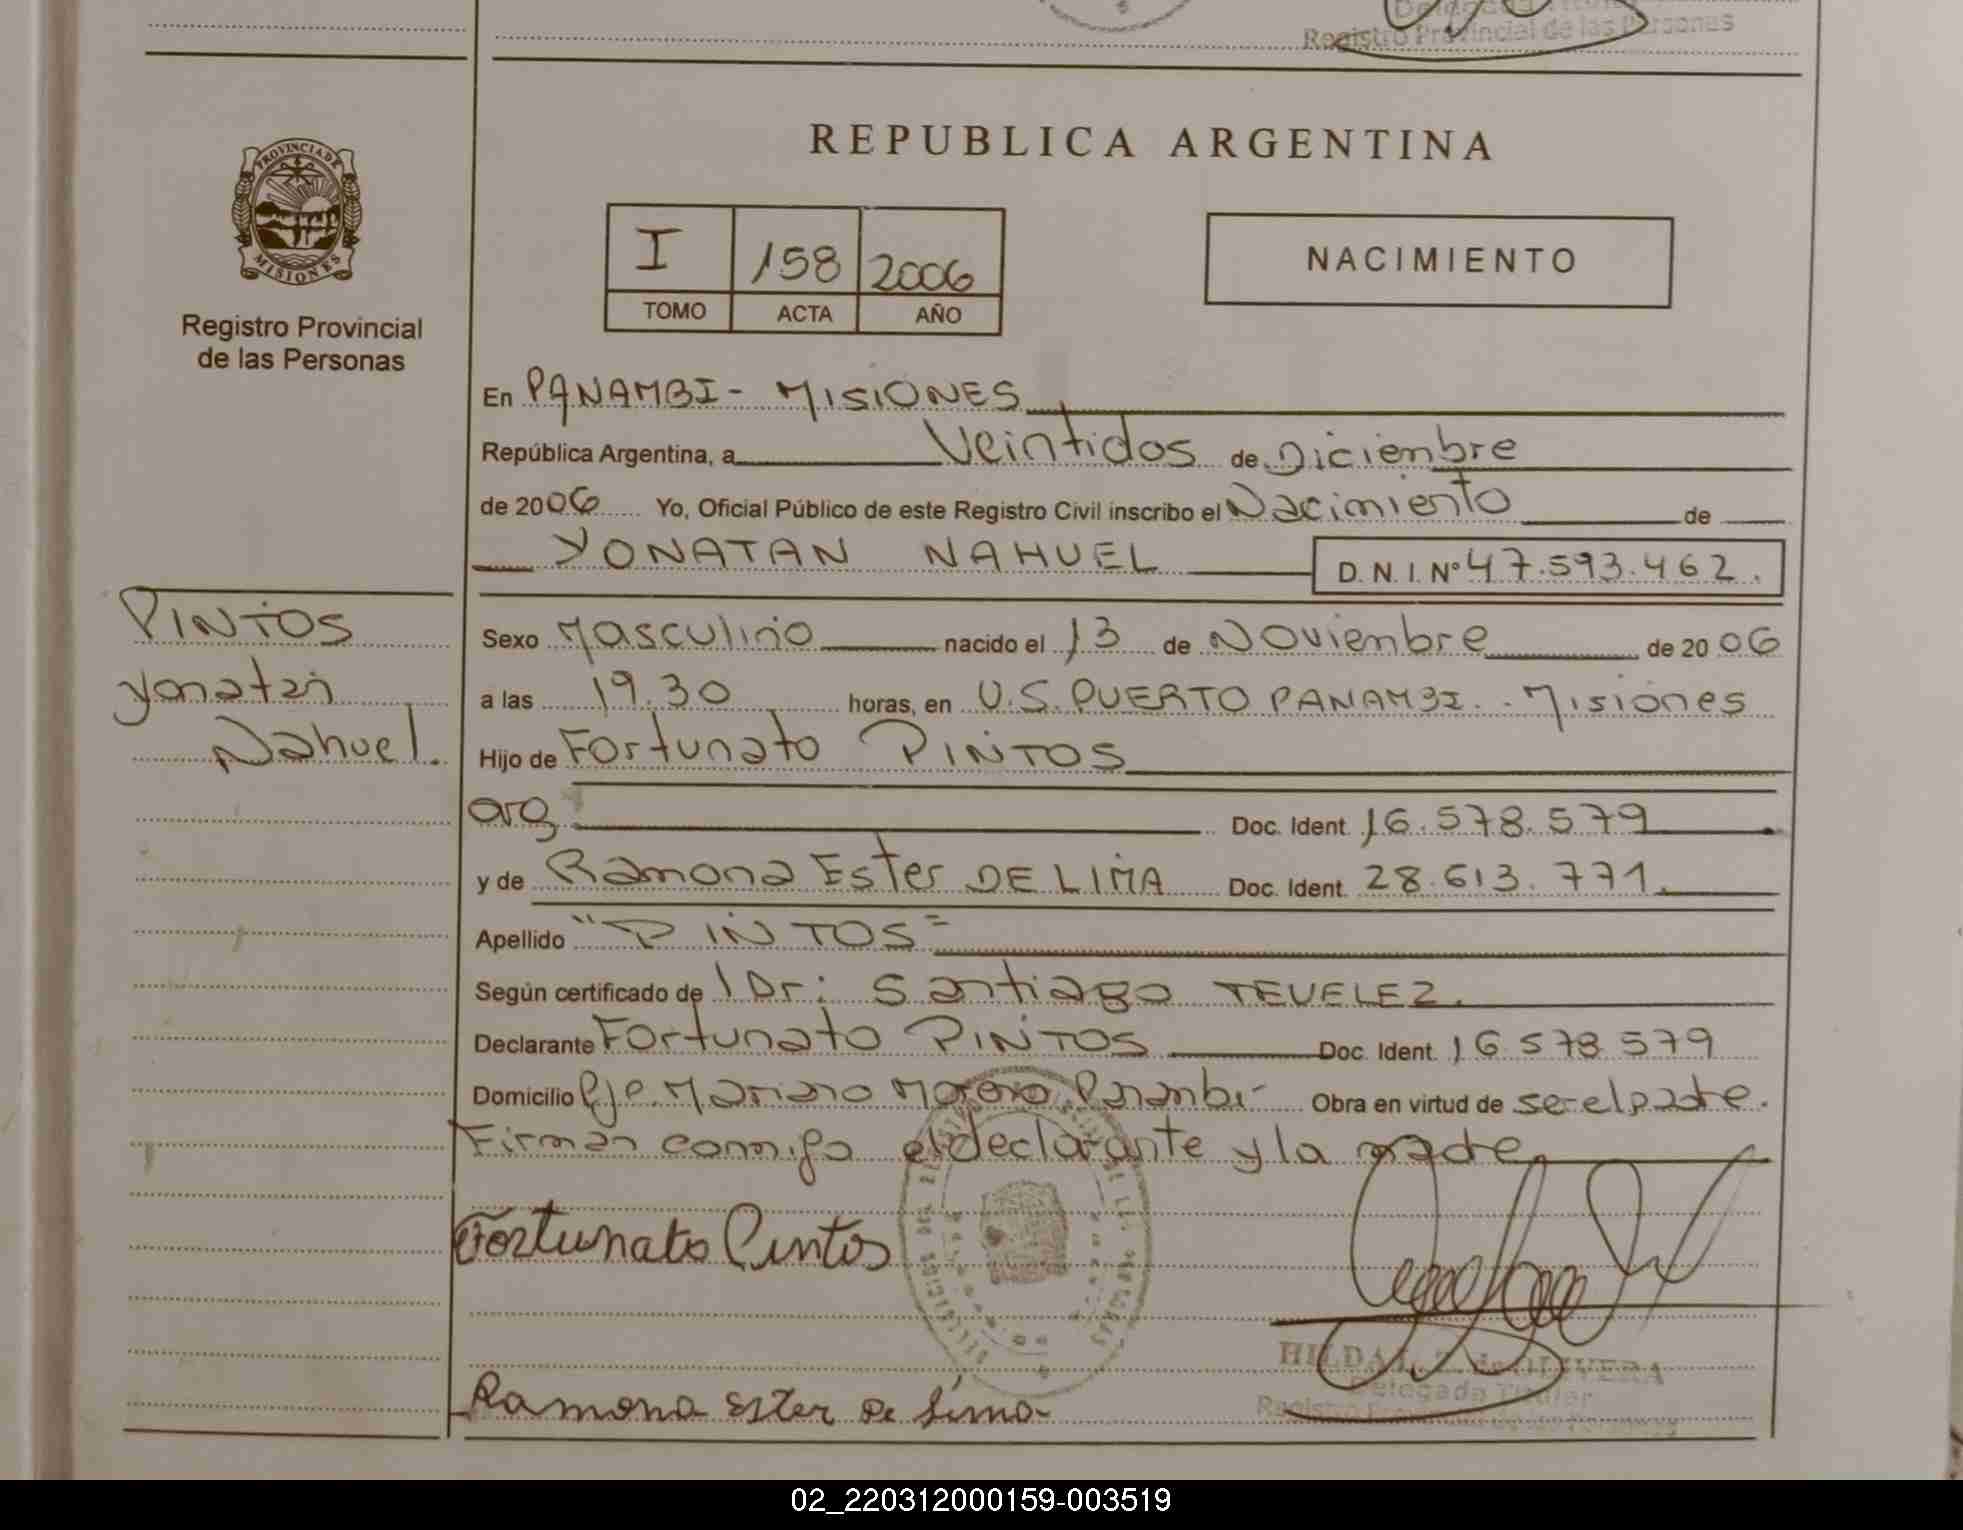 Registro Provincial de las Personas
PROVINCIA DE
MISIONES
Registro Provincial
de las Personas
REPUBLICA ARGENTINA
I 158 2006
TOMO ACTA AÑO
NACIMIENTO
En PANAMBI - MISIONES
República Argentina, a Veintidos de Diciembre
de 2006 Yo, Oficial Público de este Registro Civil inscribo el Nacimiento de
YONATAN NAHUEL D.N.I. Nº 47.593.462.
PINTOS
Yonatan
Nahuel.
Sexo Masculino nacido el 13 de Noviembre de 2006
a las 19.30 horas, en U.S. PUERTO PANAMBI. - Misiones
Hijo de Fortunato PINTOS
arg Doc. Ident. 16.578.579
y de Ramona Ester DE LIMA Doc. Ident. 28.613.771.
Apellido "PINTOS"
Según certificado de Dr: Santiago TEVELEZ.
Declarante Fortunato PINTOS Doc. Ident. 16.578.579
Domicilio Pje. Mariano Moreno Panambi - Obra en virtud de ser el padre.
Firman conmigo el declarante y la madre
Fortunato Pintos
HILDA
de OLIVERA
Delegada Titular
Registro Provincial de las Personas
Ramona Ester De Lima
02_220312000159-003519